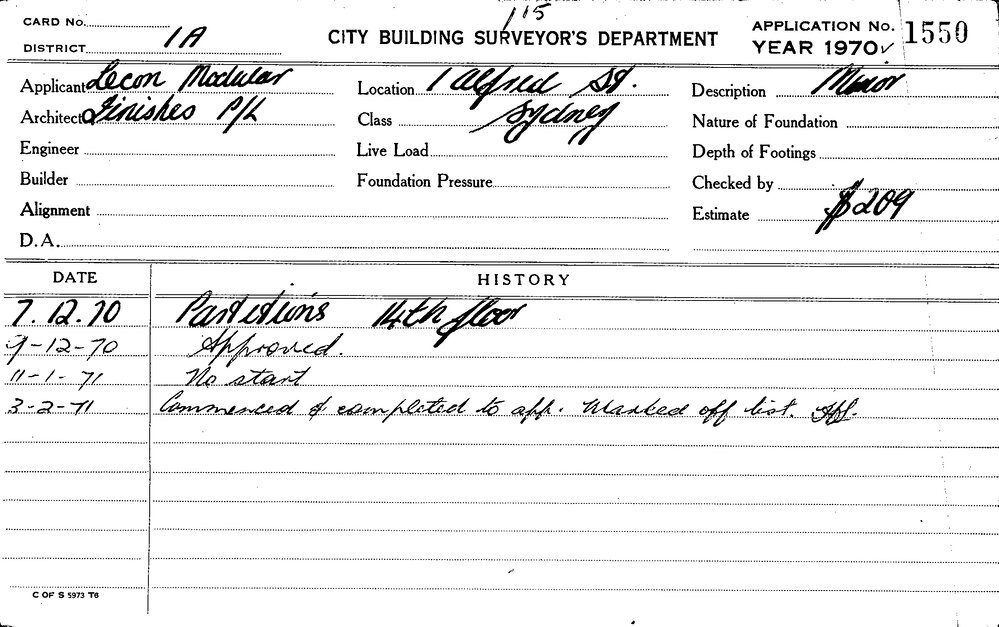 CARD No.
115
APPLICATION No. 1550
DISTRICT 1A
CITY BUILDING SURVEYOR'S DEPARTMENT
YEAR 1970 ✓
Applicant Lecon Modular
Location 1 Alfred St.
Description Minor
Architect Finishes P/L
Class Sydney
Nature of Foundation
Engineer
Live Load
Depth of Footings
Builder
Foundation Pressure
Checked by
Alignment
Estimate $209
D.A.
DATE HISTORY
7.12.70 Partitions 14th floor
9-12-70 Approved.
11-1-71 No start
3-2-71 Commenced & completed to app. Marked off list.
C OF S 5973 T6